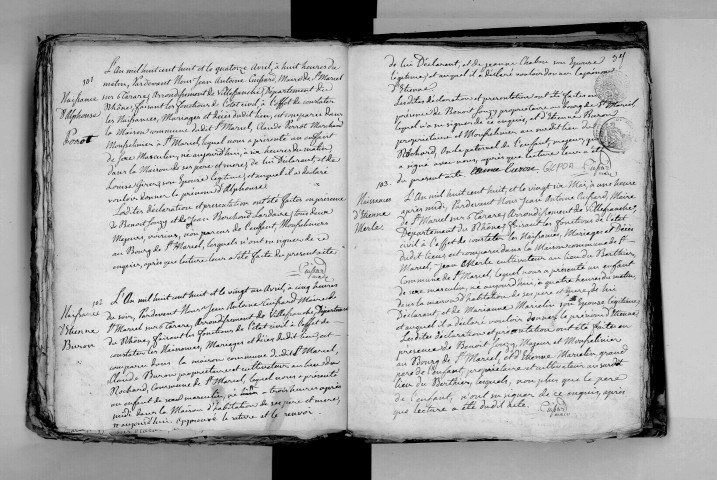 131
Naissance
d'Alphonse
Perrot
L'An mil huit cent huit et le quatorze Avril, à huit heures du
matin, Pardevant Nous Jean Antoine Cusfard, Maire de St Marcel
sur Tarare, Arrondissement de Villefranche, Département du
Rhône, faisant les fonctions de l'état civil, à l'effet de constater
les Naissances, Mariages et décès du dit lieu, est comparu dans
la Maison commune du dit St Marcel, Claude Perrot Marchand
Mousselinier à St Marcel, lequel nous a présenté un enfant
de sexe Masculin, né aujourd'hui, à six heures du matin,
dans la Maison de ses père et mère, de lui Déclarant, et de
Louise son Epouse légitime, et auquel il a déclaré
vouloir donner le prénom d'Alphonse.
Les dites déclaration et présentation ont été faites en présence
de Benoit Jouzy et de Jean Bouchard tous deux
Majeurs, voisins, non parens de l'enfant, Mousseliniers
au Bourg de St Marcel, lesquels n'ont su signer de ce
enquis, après que lecture leur a été faite du présent acte.
132
Naissance
d'Etienne
Buron
L'An mil huit cent huit et le vingt un Avril, à cinq heures
du soir, Pardevant Nous Jean Antoine Cusfard Maire de
St Marcel sur Tarare, Arrondissement de Villefranche, Département
du Rhône, faisant les fonctions de l'état civil à l'effet de
constater les Naissances, Mariages et décès dudit lieu, est
comparu dans la maison commune dudit St Marcel,
Claude Buron propriétaire et cultivateur au lieu du
Rochard, Commune de St Marcel, lequel nous a présenté
un enfant de sexe masculin, né à trois heures après
midi dans la Maison d'habitation de ses père et mère,
aujourd'hui. approuvé la rature et le renvoi
34
de lui Déclarant, et de Jeanne Chabui son Epouse
légitime, et auquel il a déclaré vouloir donner le prénom
d'Etienne.
Les dites Déclaration et présentation ont été faites en
présence de Benoit Jouzy propriétaire au bourg de St Marcel
lequel n'a su signer de ce enquis, et d'Etienne Buron
propriétaire et Mousselinier au dit lieu du
Rochard, Oncle paternel de l'enfant, majeur, qui
a signé avec nous, après que lecture leur a été
du présent acte.
133.
Naissance
d'Etienne
Merle.
L'An mil huit cent huit, et le vingt six Mai, à une heure
après midi, Pardevant Nous Jean Antoine Cusfard, Maire
de St Marcel sur Tarare, Arrondissement de Villefranche,
Département du Rhône, faisant les fonctions de l'état
civil à l'effet de constater les Naissances, Mariages et Décès
du dit lieu, est comparu dans la Maison commune de St
Marcel, Jean Merle cultivateur au lieu du Berthier,
Commune de St Marcel, lequel nous a présenté un enfant
de sexe masculin, né aujourd'hui, à quatre heures du matin,
dans la maison d'habitation de ses père et mère, de lui
Déclarant et de Marianne Marcelin son Epouse légitime,
et auquel il a déclaré vouloir donner le prénom d'Etienne.
Les dites déclaration et présentation ont été faites en
présence de Benoit Jouzy, Majeur et Mousselinier
au Bourg de St Marcel, et d'Etienne Marcelin, grand
père de l'enfant, propriétaire et cultivateur au susdit
lieu du Berthier, lesquels, non plus que le père
de l'enfant, n'ont su signer de ce enquis, après
que lecture a été du dit acte.